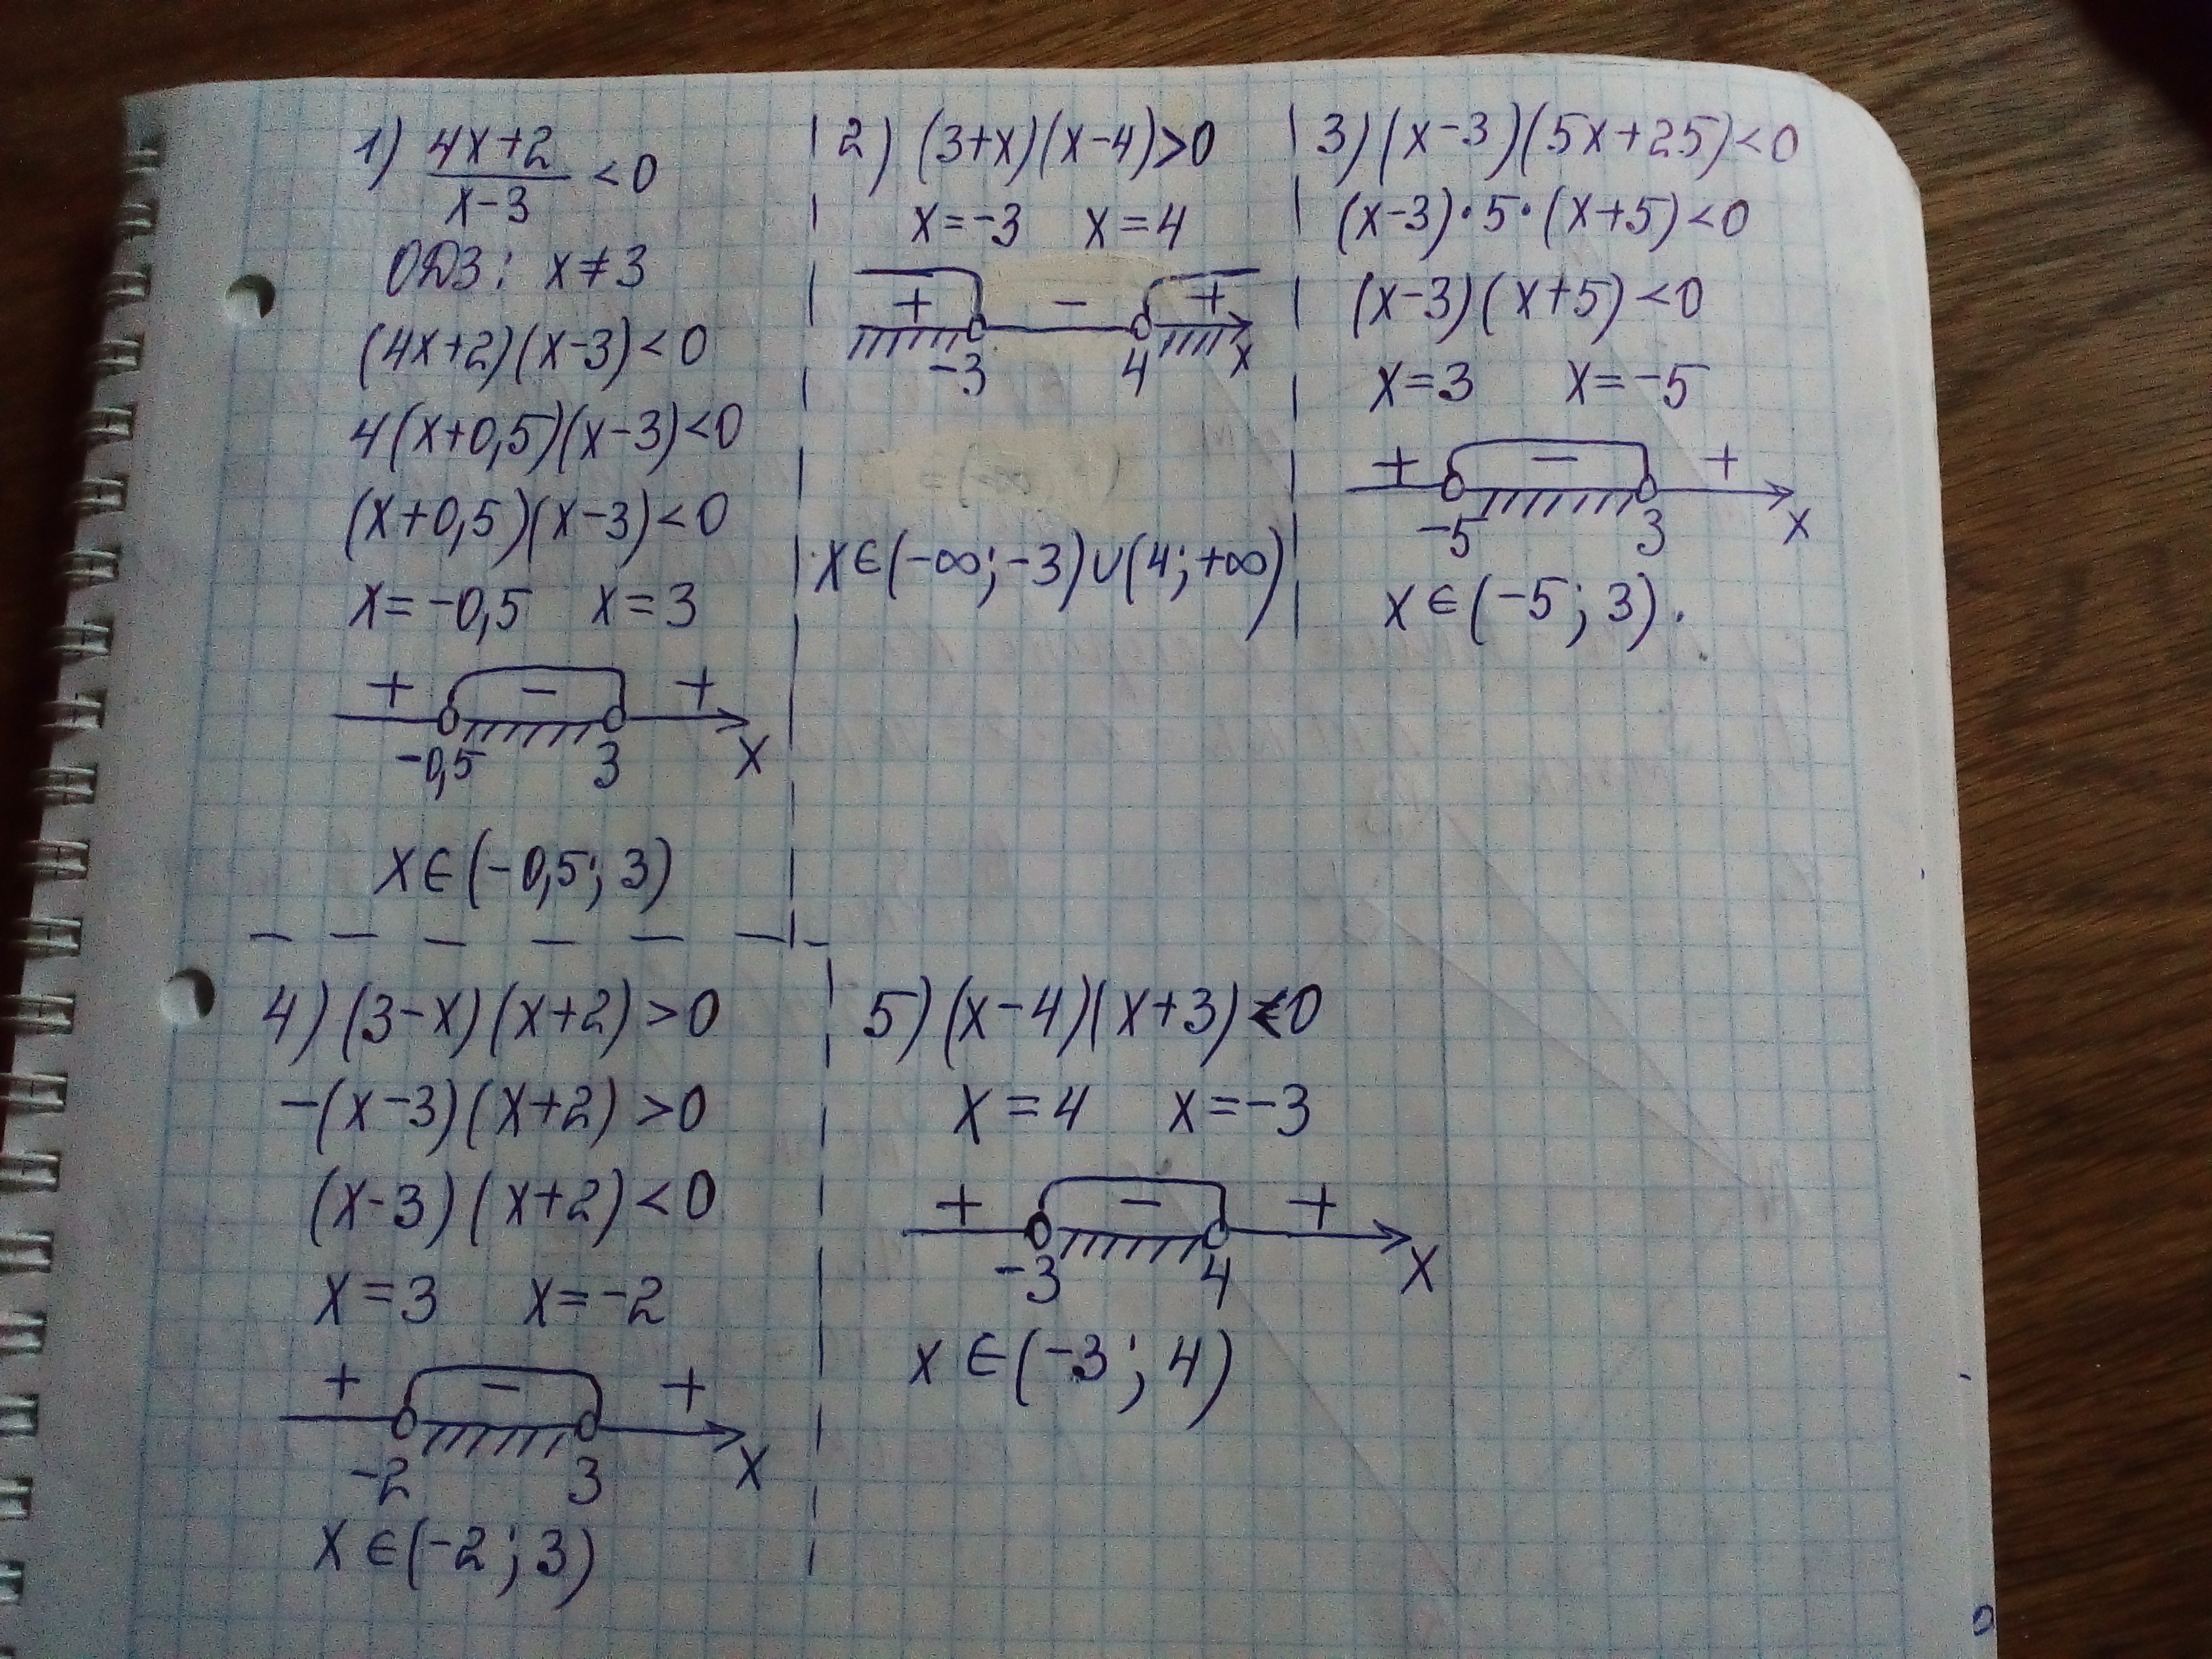 1) (4x+2)/(x-3) <0
ОДЗ: x≠3
(4x+2)(x-3)<0
4(x+0,5)(x-3)<0
(x+0,5)(x-3)<0
x=-0,5 x=3
+ - +
-0,5 3 x
x∈(-0,5; 3)
2) (3+x)(x-4)>0
x=-3 x=4
+ - +
-3 4 x
x∈(-∞;-3)∪(4;+∞)
3) (x-3)(5x+25)<0
(x-3)·5·(x+5)<0
(x-3)(x+5)<0
x=3 x=-5
+ - +
-5 3 x
x∈(-5; 3).
4) (3-x)(x+2)>0
-(x-3)(x+2)>0
(x-3)(x+2)<0
x=3 x=-2
+ - +
-2 3 x
x∈(-2; 3)
5) (x-4)(x+3)<0
x=4 x=-3
+ - +
-3 4 x
x∈(-3; 4)